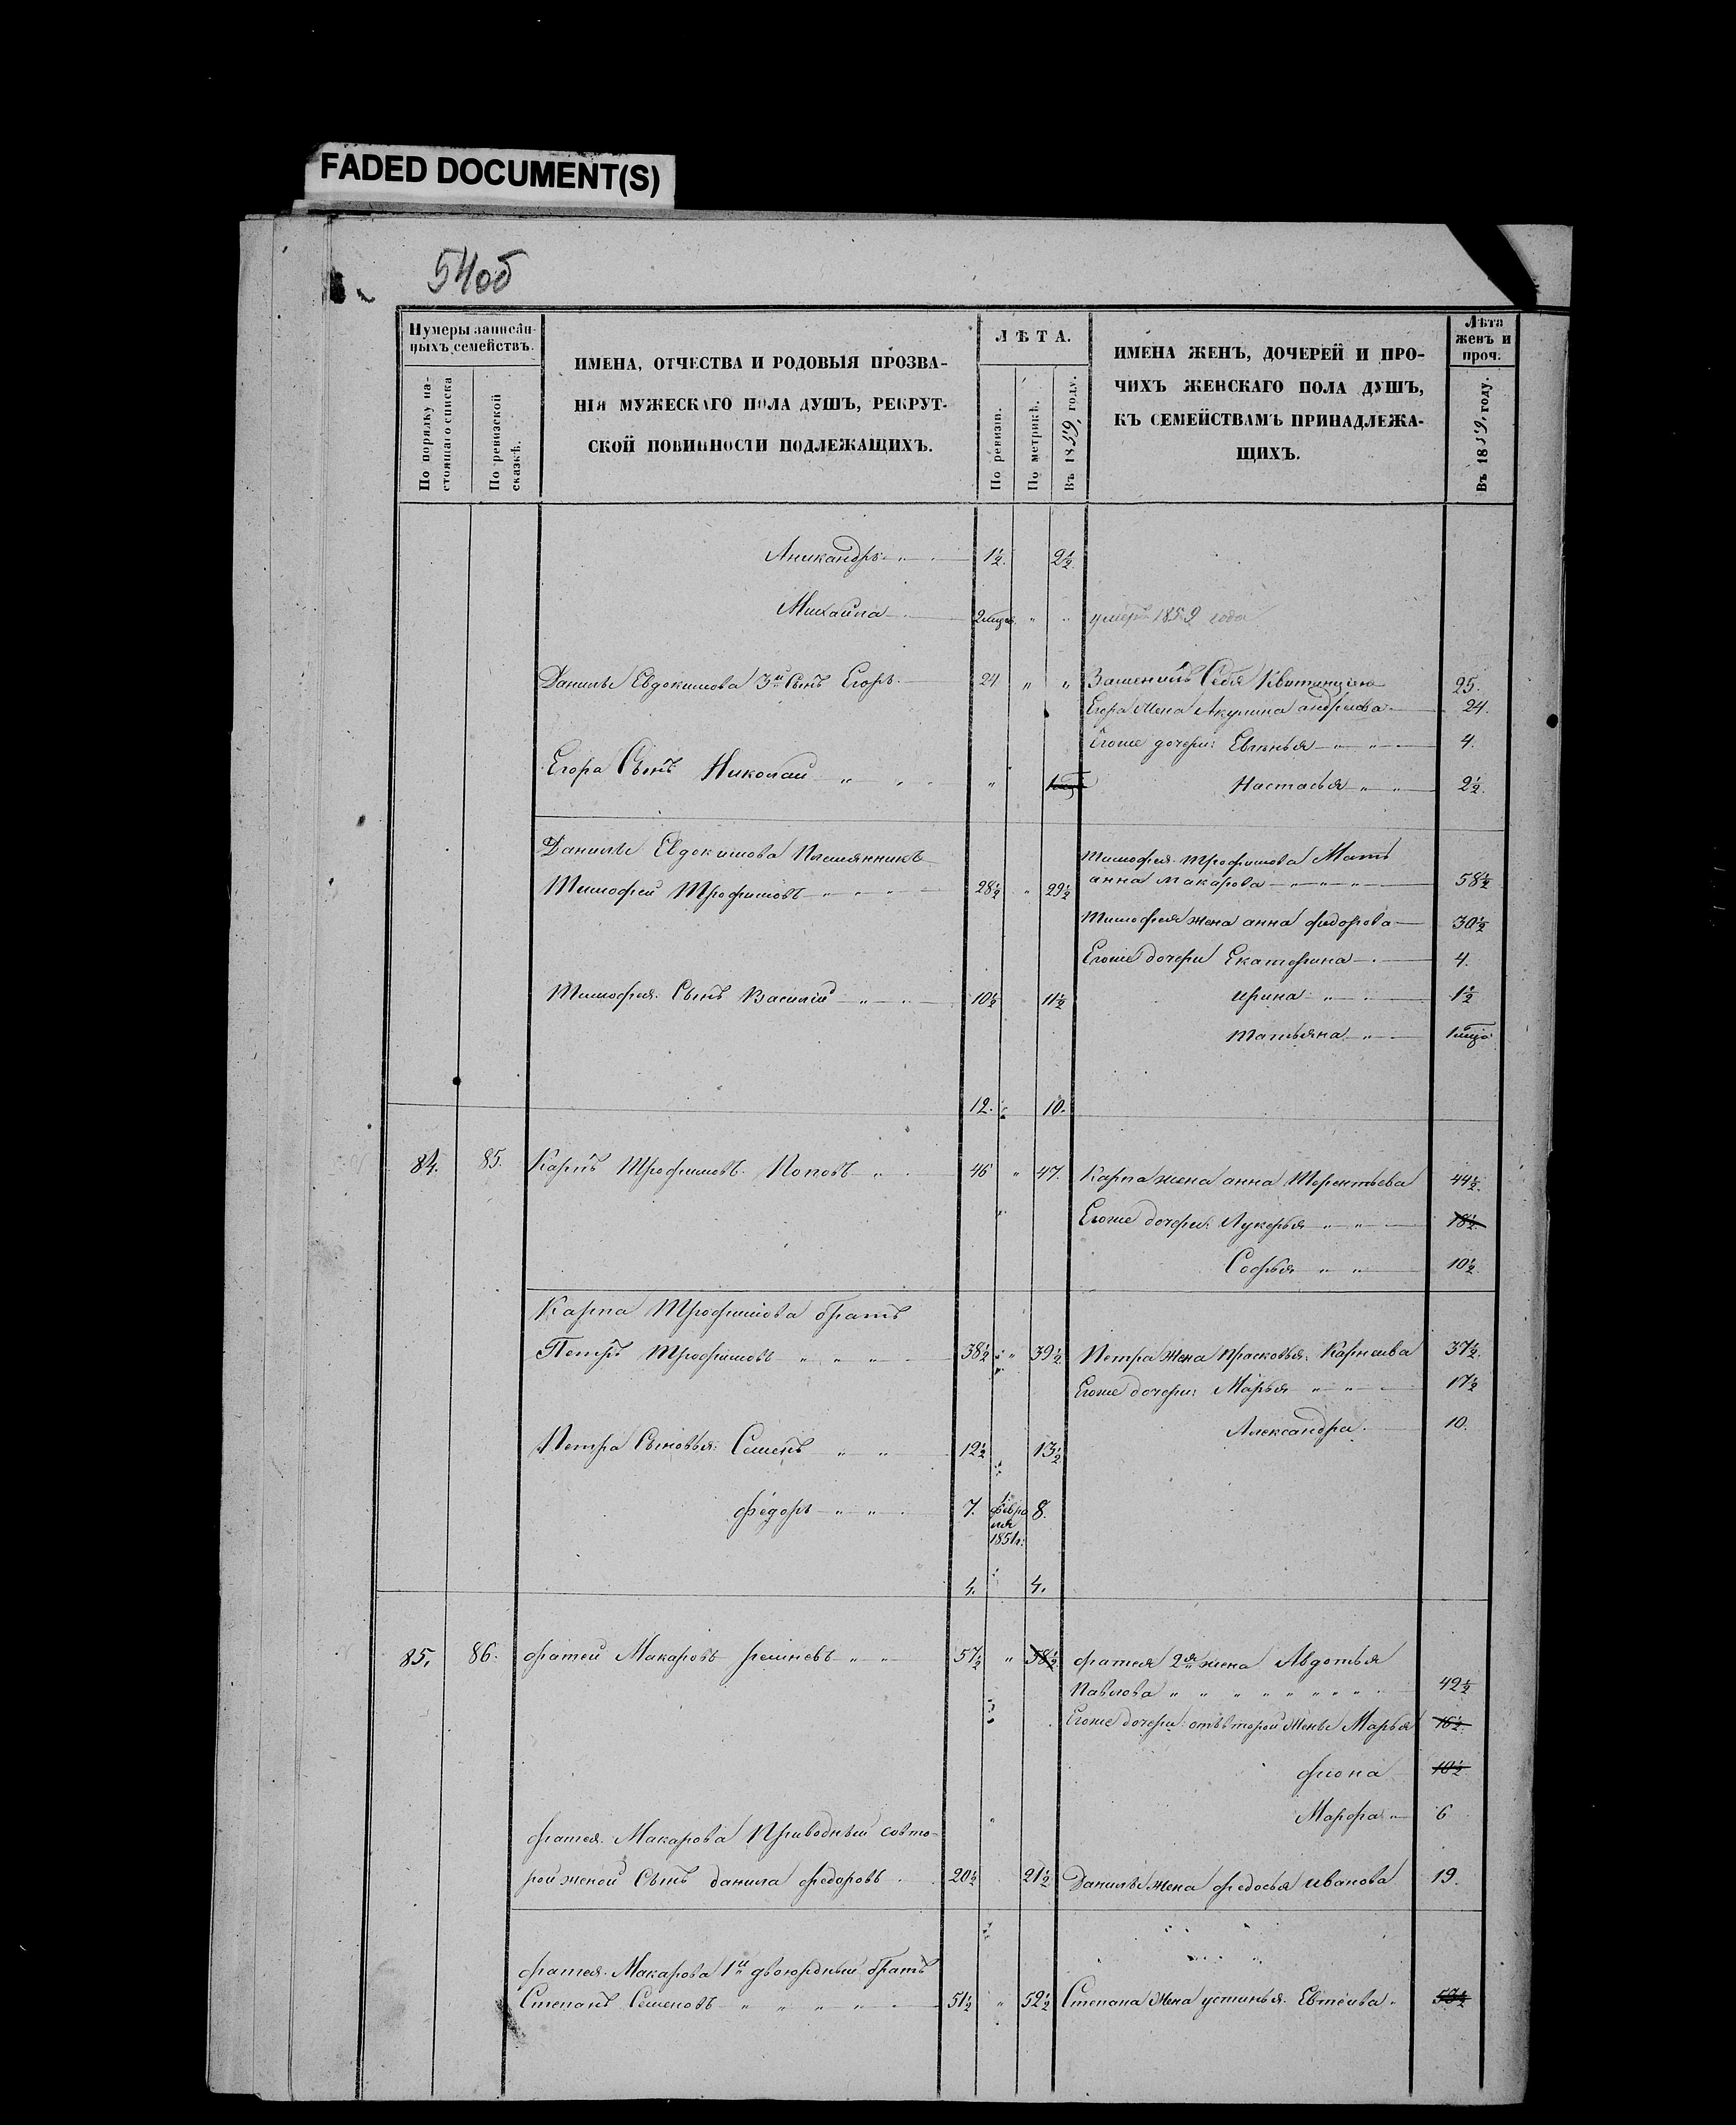 FADED DOCUMENT(S)
54об
Нумеры записан-
ныхъ семействъ.
По порядку на-
стоящаго списка
По ревизской
сказкѣ.
ИМЕНА, ОТЧЕСТВА И РОДОВЫЯ ПРОЗВА-
НІЯ МУЖЕСКАГО ПОЛА ДУШЪ, РЕКРУТ-
СКОЙ ПОВИННОСТИ ПОДЛЕЖАЩИХЪ.
ЛѢТА.
По ревизіи.
По метрикѣ.
Въ 1859, году.
ИМЕНА ЖЕНЪ, ДОЧЕРЕЙ И ПРО-
ЧИХЪ ЖЕНСКАГО ПОЛА ДУШЪ,
КЪ СЕМЕЙСТВАМЪ ПРИНАДЛЕЖА-
ЩИХЪ.
Лѣта
женъ и
проч.
Въ 1859, году.
Аникандръ 1½. 2½
Михаила 2 мцов. " " умеръ 1859 года
Данилы Евдокимова 3й Сынъ Егоръ 24 " " Заменилъ Себя Квитанціею 25.
Егора Жена Акулина андреева 24.
Егоже дочери: Евгенья 4.
Егора Сынъ Николай " Настасья 2½.
Данилы Евдокимова Племянникъ Тимофея Трофимова Мать
Тимофей Трофимовъ 28½ " 29½ анна Макарова 58½
Тимофея жена анна федорова 30½
Егоже дочери Екатерина 4.
Тимофея Сынъ Василій 10½ 11½ ирина 1½
Татьяна 1 мцъ
12. 10.
84. 85. Карпъ Трофимовъ Поповъ 46 " 47. Карпа жена анна Терентьева 44½.
Егоже дочери: Лукерья 18½
Софья 10½
Карпа Трофимова братъ
Петръ Трофимовъ 38½ " 39½ Петра Жена Прасковья Карнеева 37½.
Егоже дочери: Марья 17½
Александра 10.
Петра Сыновья: Семенъ 12½ 13½
федоръ 7. 1 Февра
ля
1851г: 8.
4. 4.
85. 86. фатей Макаровъ 57½ " 58½ фатея 2я жена Авдотья
Павлова 42½
Егоже дочери: отъ второй Жены Марья 16½
фіона 10½
Марфа 6
фатея Макарова Приводный совто-
рой женой Сынъ данила федоровъ 20½ 21½ Данилы жена федосья иванова 19.
фатея Макарова 1й двоюродный братъ
Степанъ Семеновъ 51½ " 52½ Степана Жена устинья Евтеева 53½